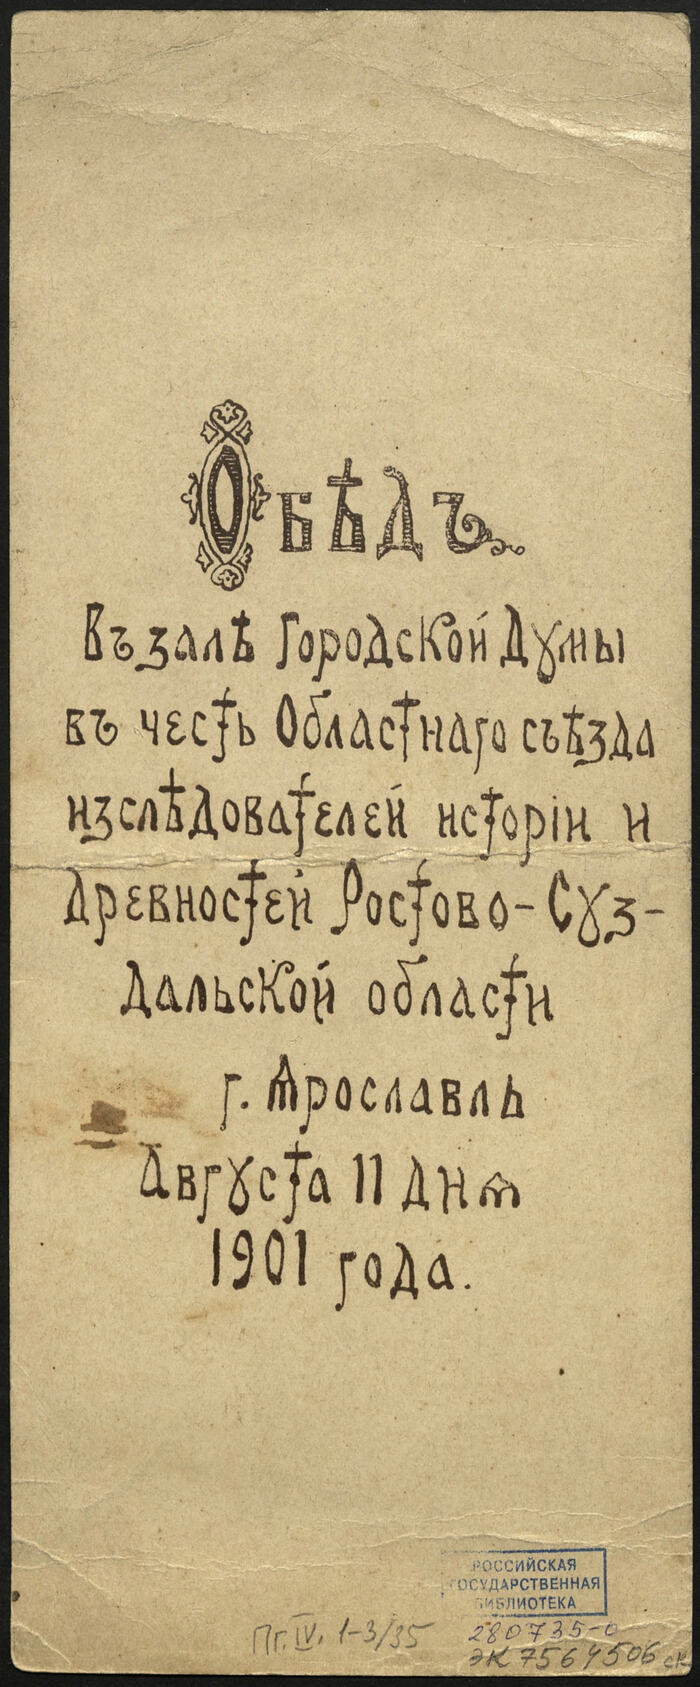 Обѣдъ
въ залѣ Городской Думы
въ честь Областнаго съѣзда
изслѣдователей исторіи и
древностей Ростово-Суз-
дальской области
г. Ѧрославль
Августа 11 днѧ
1901 года.
РОССИЙСКАЯ
ГОСУДАРСТВЕННАЯ
БИБЛИОТЕКА
Пг.IV. 1-3/35
280735-0
ЭК 7564506 ск